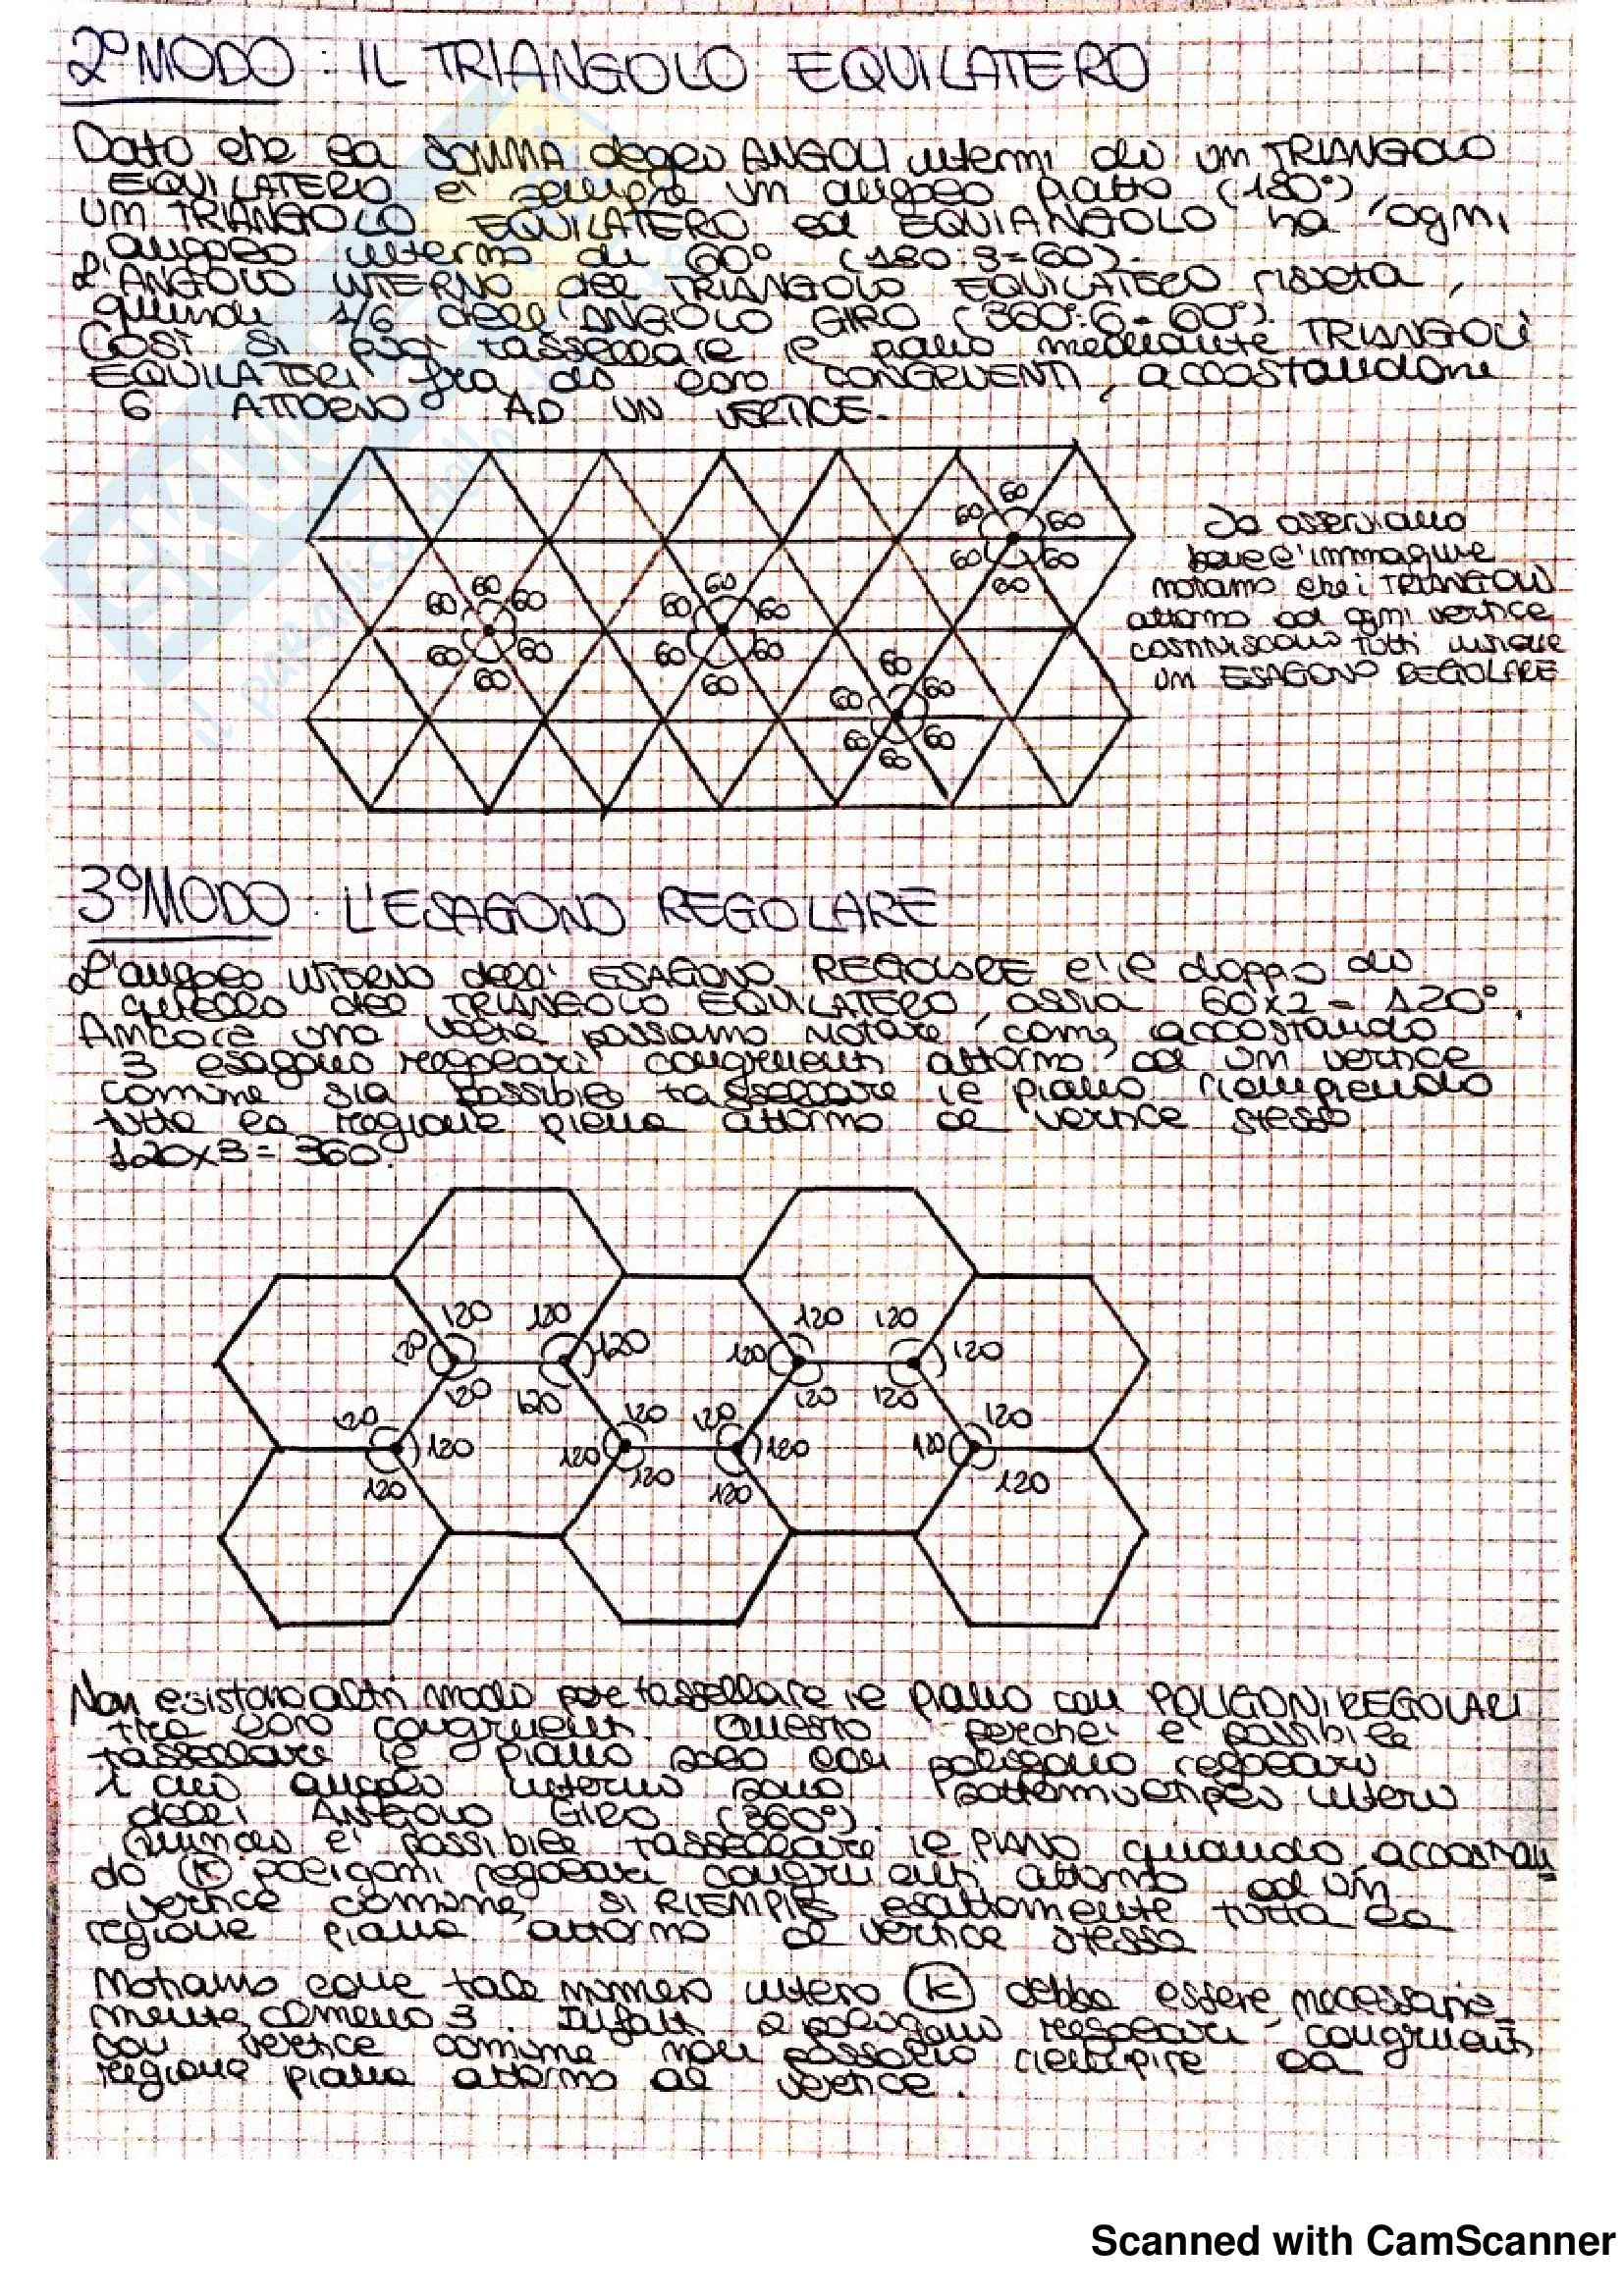 2° MODO : IL TRIANGOLO EQUILATERO
Dato che la SOMMA degli ANGOLI interni di un TRIANGOLO
EQUILATERO è sempre un angolo piatto (180°),
UM TRIANGOLO EQUILATERO ed EQUIANGOLO ha ogni
angolo interno di 60° (180:3=60).
L'ANGOLO INTERNO del TRIANGOLO EQUILATERO risulta,
quindi 1/6 dell'ANGOLO GIRO (360°:6=60°)
Così si può tassellare il piano mediante TRIANGOLI
EQUILATERI fra di loro CONGRUENTI, accostandone
6 ATTORNO AD UN VERTICE.
60
60 60
60 60
60
60 60
60 60 60 60
60 60 60 60
60 60
60
60
60 60
60
Se osserviamo
bene l'immagine
notiamo che i TRIANGOLI
attorno ad ogni vertice
costituiscono tutti insieme
un ESAGONO REGOLARE
3° MODO : L'ESAGONO REGOLARE
L'angolo interno dell' ESAGONO REGOLARE è il doppio di
quello del TRIANGOLO EQUILATERO, ossia 60x2 = 120°.
Ancora una volta possiamo notare come, accostando
3 esagoni regolari congruenti attorno ad un vertice
comune sia possibile tassellare il piano riempiendo
tutta la regione piana attorno al vertice stesso.
120x3 = 360°
120 120 120 120
120 120 120 120
120 120 120 120
120 120 120 120
120 120 120 120
120 120 120 120
Non esistono altri modi per tassellare il piano con POLIGONI REGOLARI
tra loro congruenti. Questo perchè è possibile
tassellare il piano solo con poligoni regolari
i cui angoli interni sono sottomultipli interi
dell' ANGOLO GIRO (360°).
Quindi è possibile tassellare il PIANO quando, accostan=
do (K) poligoni regolari congruenti attorno ad un
vertice comune, si RIEMPIE esattamente tutta la
regione piana attorno al vertice stesso
Notiamo come tale numero intero (K) debba essere necessaria=
mente almeno 3. Infatti 2 poligoni regolari congruenti
con vertice comune non possono riempire la
regione piana attorno al vertice.
Scanned with CamScanner